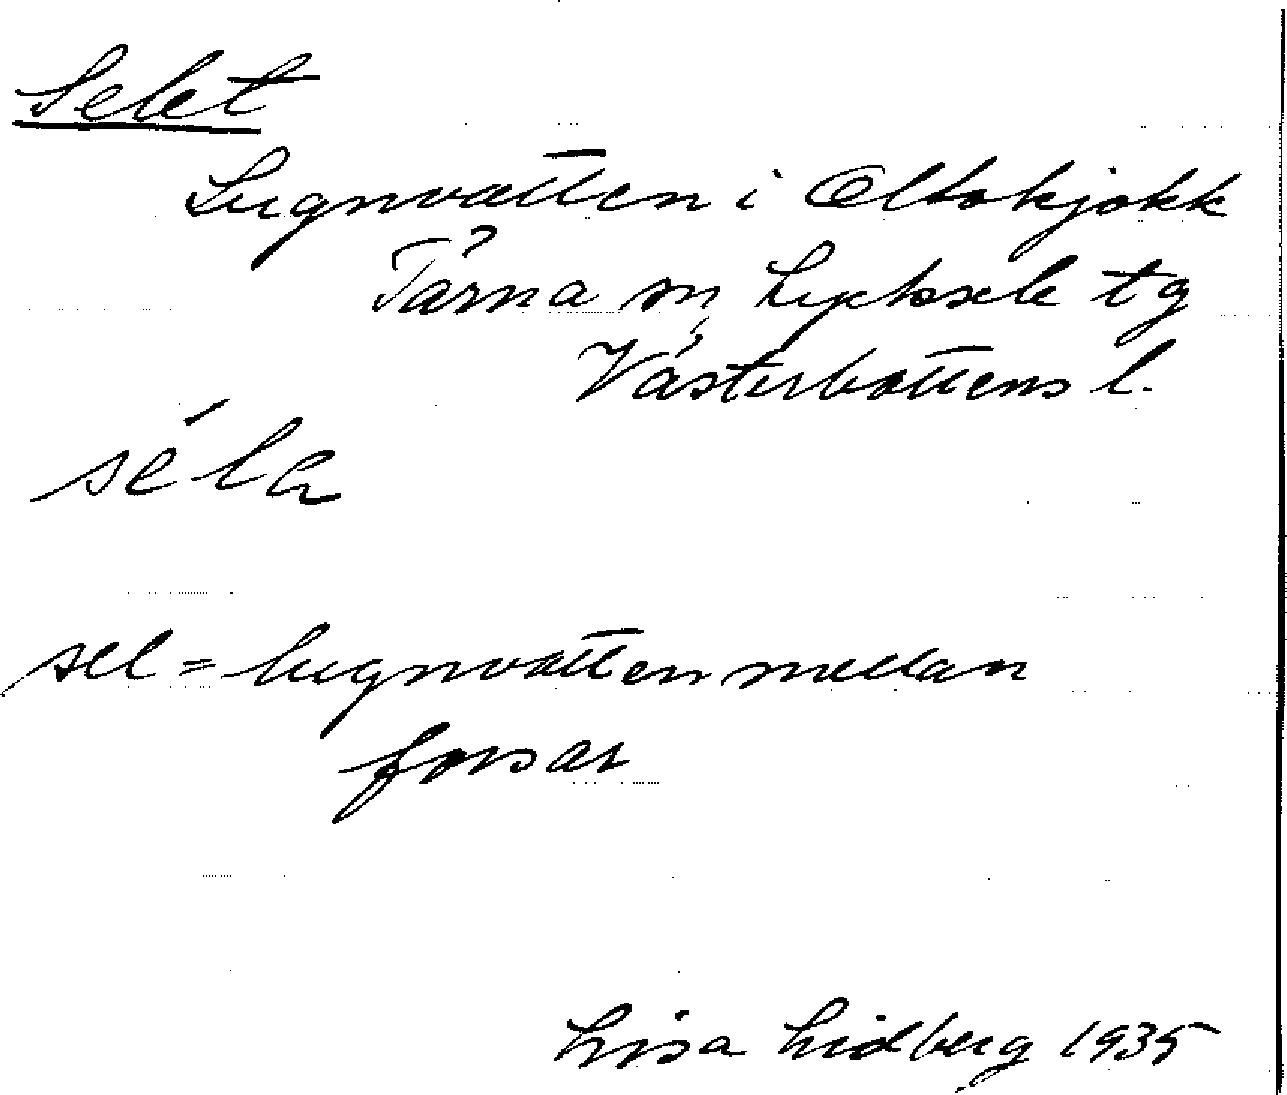 Selet
Lugnvatten i Oltokjokk
Tärna sn, Lycksele tg
Västerbottens l.
séla
sel = lugnvatten mellan
forsar
Lisa Lidberg 1935